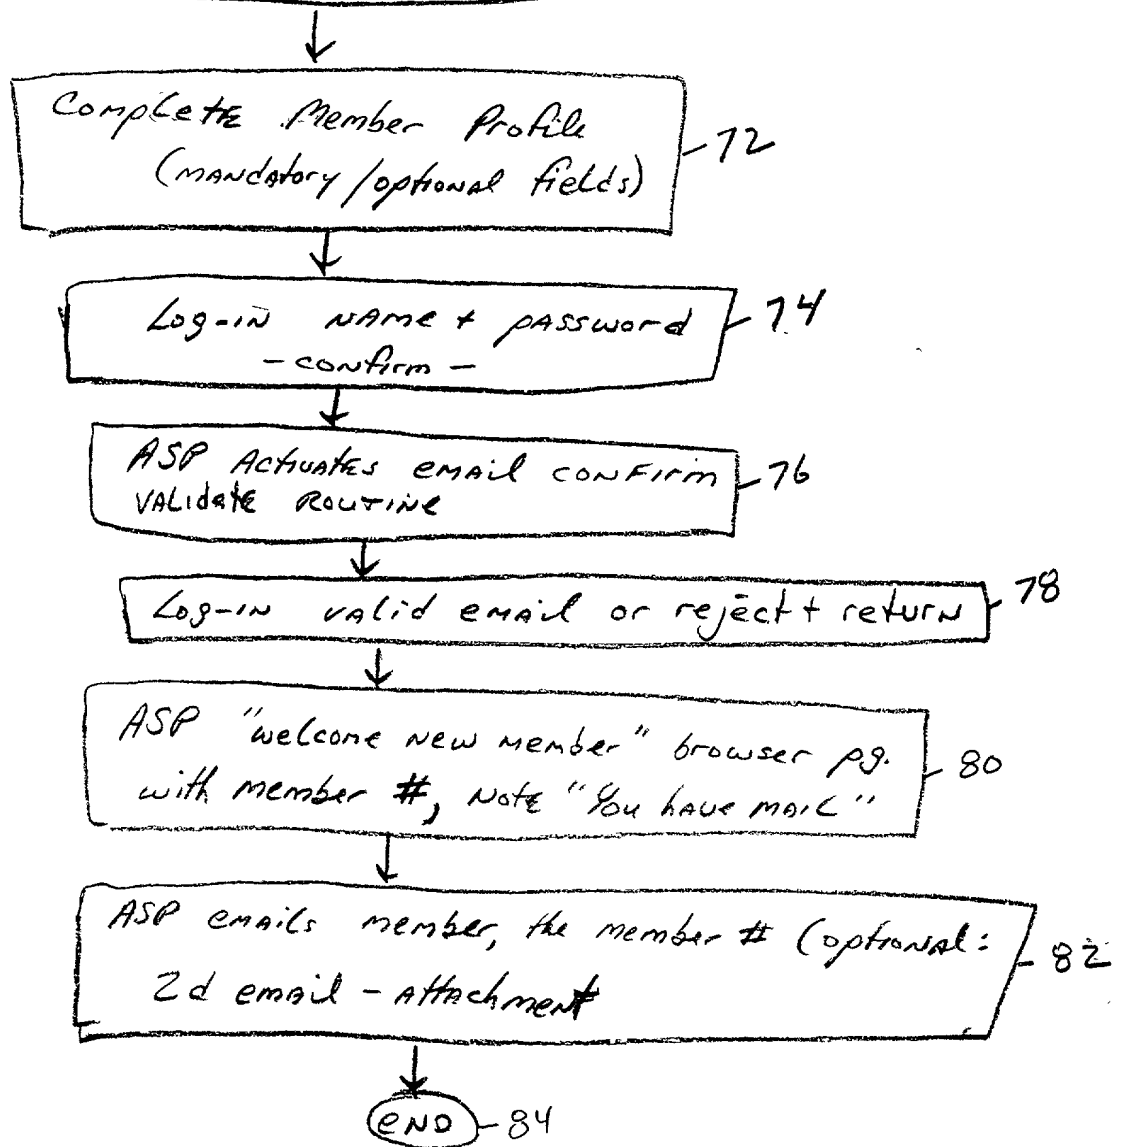 Complete Member Profile
(mandatory/optional fields)
72
Log-in name + password
- confirm -
74
ASP Activates email confirm
validate Routine
76
Log-in valid email or reject + return
78
ASP "welcome new member" browser pg.
with member #, Note "You have mail"
80
ASP emails member, the member # (optional:
2d email - attachment
82
END
84